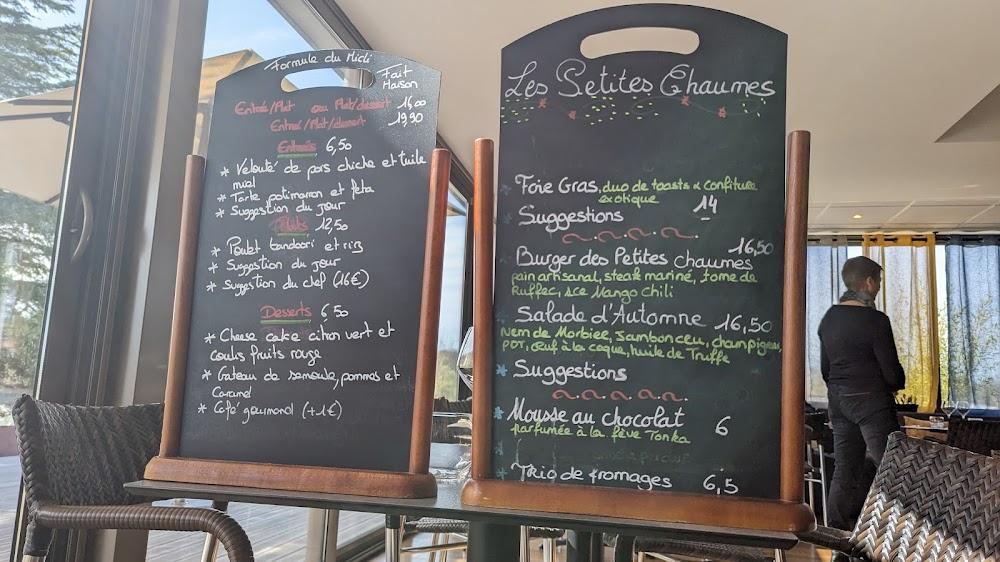 Formule du Midi
Fait
Maison
Entrée/Plat ou Plat/dessert 16,00
Entrée/Plat/dessert 19,90
Entrées 6,50
* Velouté de pois chiche et tuile
miel
* Tarte potimarron et feta
* Suggestion du jour
Plats 12,50
* Poulet tandoori et riz
* Suggestion du jour
* Suggestion du chef (16€)
Desserts 6,50
* Cheese cake citron vert et
Coulis fruits rouge
* Gateau de semoule, pommes et
Caramel
* Café gourmand (+1€)
Les Petites Chaumes
Foie Gras, duo de toasts & confiture
exotique 14
Suggestions
Burger des Petites chaumes 16,50
pain artisanal, steak mariné, tome de
Ruffec, sce Mango Chili
Salade d'Automne 16,50
Nem de Morbier, Jambon cru, champignons,
PDT, œuf à la coque, huile de Truffe
* Suggestions
* Mousse au chocolat 6
parfumée à la fève Tonka
* Trio de fromages 6,5